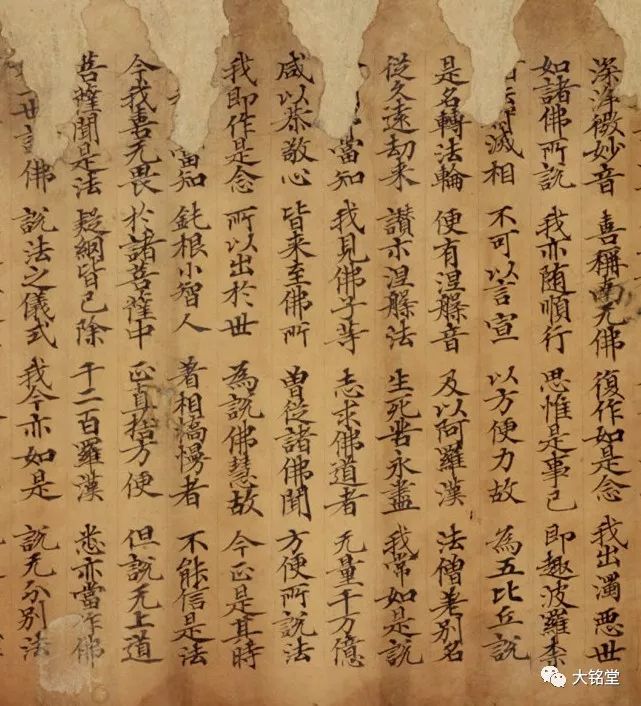 深淨微妙音 喜稱南无佛 復作如是念 我出濁惡世
如諸佛所說 我亦随順行 思惟是事已 即趣波羅柰
滅相 不可以言宣 以方便力故 為五比丘說
是名轉法輪 便有涅槃音 及以阿羅漢 法僧差別名
從久遠劫来 讚示涅槃法 生死苦永盡 我常如是說
當知 我見佛子等 志求佛道者 无量千万億
咸以恭敬心 皆来至佛所 曾從諸佛聞 方便所說法
我即作是念 所以出於世 為說佛慧故 今正是其時
當知 鈍根小智人 著相憍慢者 不能信是法
今我喜无畏 於諸菩薩中 正直捨方便 但說无上道
菩薩聞是法 疑網皆已除 千二百羅漢 悉亦當作佛
世諸佛 說法之儀式 我今亦如是 說无分別法
大铭堂